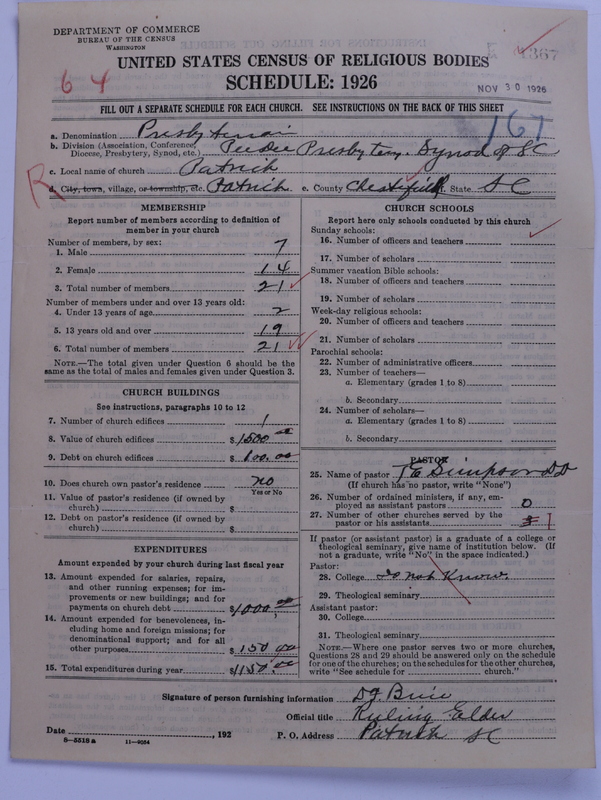 DEPARTMENT OF COMMERCE
BUREAU OF THE CENSUS
WASHINGTON
UNITED STATES CENSUS OF RELIGIOUS BODIES
64
SCHEDULE: 1926
NOV 30 1926
FILL OUT A SEPARATE SCHEDULE FOR EACH CHURCH. SEE INSTRUCTIONS ON THE BACK OF THIS SHEET
167
a. Denomination Presbyterian
b. Division (Association, Conference, Diocese, Presbytery, Synod, etc.) Peedee Presbytery, Synod of SC
c. Local name of church Patrick
R
d. City, town, village, or township, etc. Patrick e. County Chesterfield f. State SC
MEMBERSHIP
Report number of members according to definition of
member in your church
Number of members, by sex:
1. Male 7
2. Female 14
3. Total number of members 21
Number of members under and over 13 years old:
4. Under 13 years of age 2
5. 13 years old and over 19
6. Total number of members 21
NOTE.—The total given under Question 6 should be the
same as the total of males and females given under Question 3.
CHURCH BUILDINGS
See instructions, paragraphs 10 to 12
7. Number of church edifices 1
8. Value of church edifices $1500 00
9. Debt on church edifices $100.00
10. Does church own pastor's residence no
Yes or No
11. Value of pastor's residence (if owned by
church) $
12. Debt on pastor's residence (if owned by
church) $
EXPENDITURES
Amount expended by your church during last fiscal year
13. Amount expended for salaries, repairs,
and other running expenses; for im-
provements or new buildings; and for
payments on church debt $1000,00
14. Amount expended for benevolences, in-
cluding home and foreign missions; for
denominational support; and for all
other purposes $150 00
15. Total expenditures during year $1150.00
CHURCH SCHOOLS
Report here only schools conducted by this church
Sunday schools:
16. Number of officers and teachers
17. Number of scholars
Summer vacation Bible schools:
18. Number of officers and teachers
19. Number of scholars
Week-day religious schools:
20. Number of officers and teachers
21. Number of scholars
Parochial schools:
22. Number of administrative officers
23. Number of teachers—
a. Elementary (grades 1 to 8)
b. Secondary
24. Number of scholars—
a. Elementary (grades 1 to 8)
b. Secondary
PASTOR
25. Name of pastor Simpson DD
(If church has no pastor, write "None")
26. Number of ordained ministers, if any, em-
ployed as assistant pastors 0
27. Number of other churches served by the
pastor or his assistants
If pastor (or assistant pastor) is a graduate of a college or
theological seminary, give name of institution below. (If
not a graduate, write "No" in the space indicated.)
Pastor:
28. College do not Know.
29. Theological seminary
Assistant pastor:
30. College
31. Theological seminary
NOTE.—Where one pastor serves two or more churches,
Questions 28 and 29 should be answered only on the schedule
for one of the churches; on the schedules for the other churches,
write "See schedule for church."
Signature of person furnishing information
Official title Ruling Elder
Date , 192 P. O. Address Patrick SC
8—5518a 11—9084